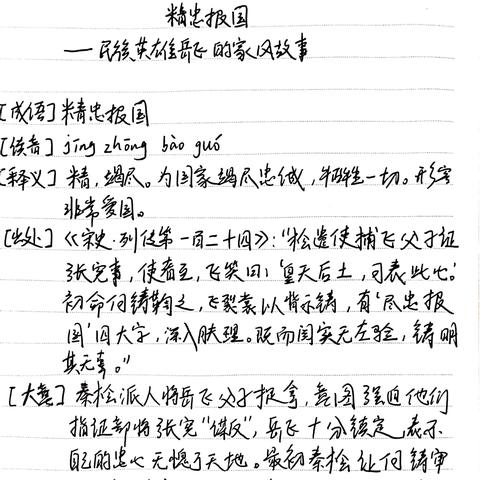 精忠报国
——民族英雄岳飞的家风故事
[成语]精忠报国
[读音] jīng zhōng bào guó
[释义]精,竭尽。为国家竭尽忠诚,牺牲一切。形容
非常爱国。
[出处]《宋史·列传第一百二十四》:“桧遣使捕飞父子证
张宪事,使者至,飞笑曰:‘皇天后土,可表此心。’
初命何铸鞠之,飞裂裳以背示铸,有‘尽忠报
国’四大字,深入肤理。既而阅实无左验,铸明
其无辜。”
[大意]秦桧派人将岳飞父子捉拿,意图强迫他们
指证部将张宪“谋反”,岳飞十分镇定,表示
自己的忠心无愧于天地。最初秦桧让何铸审